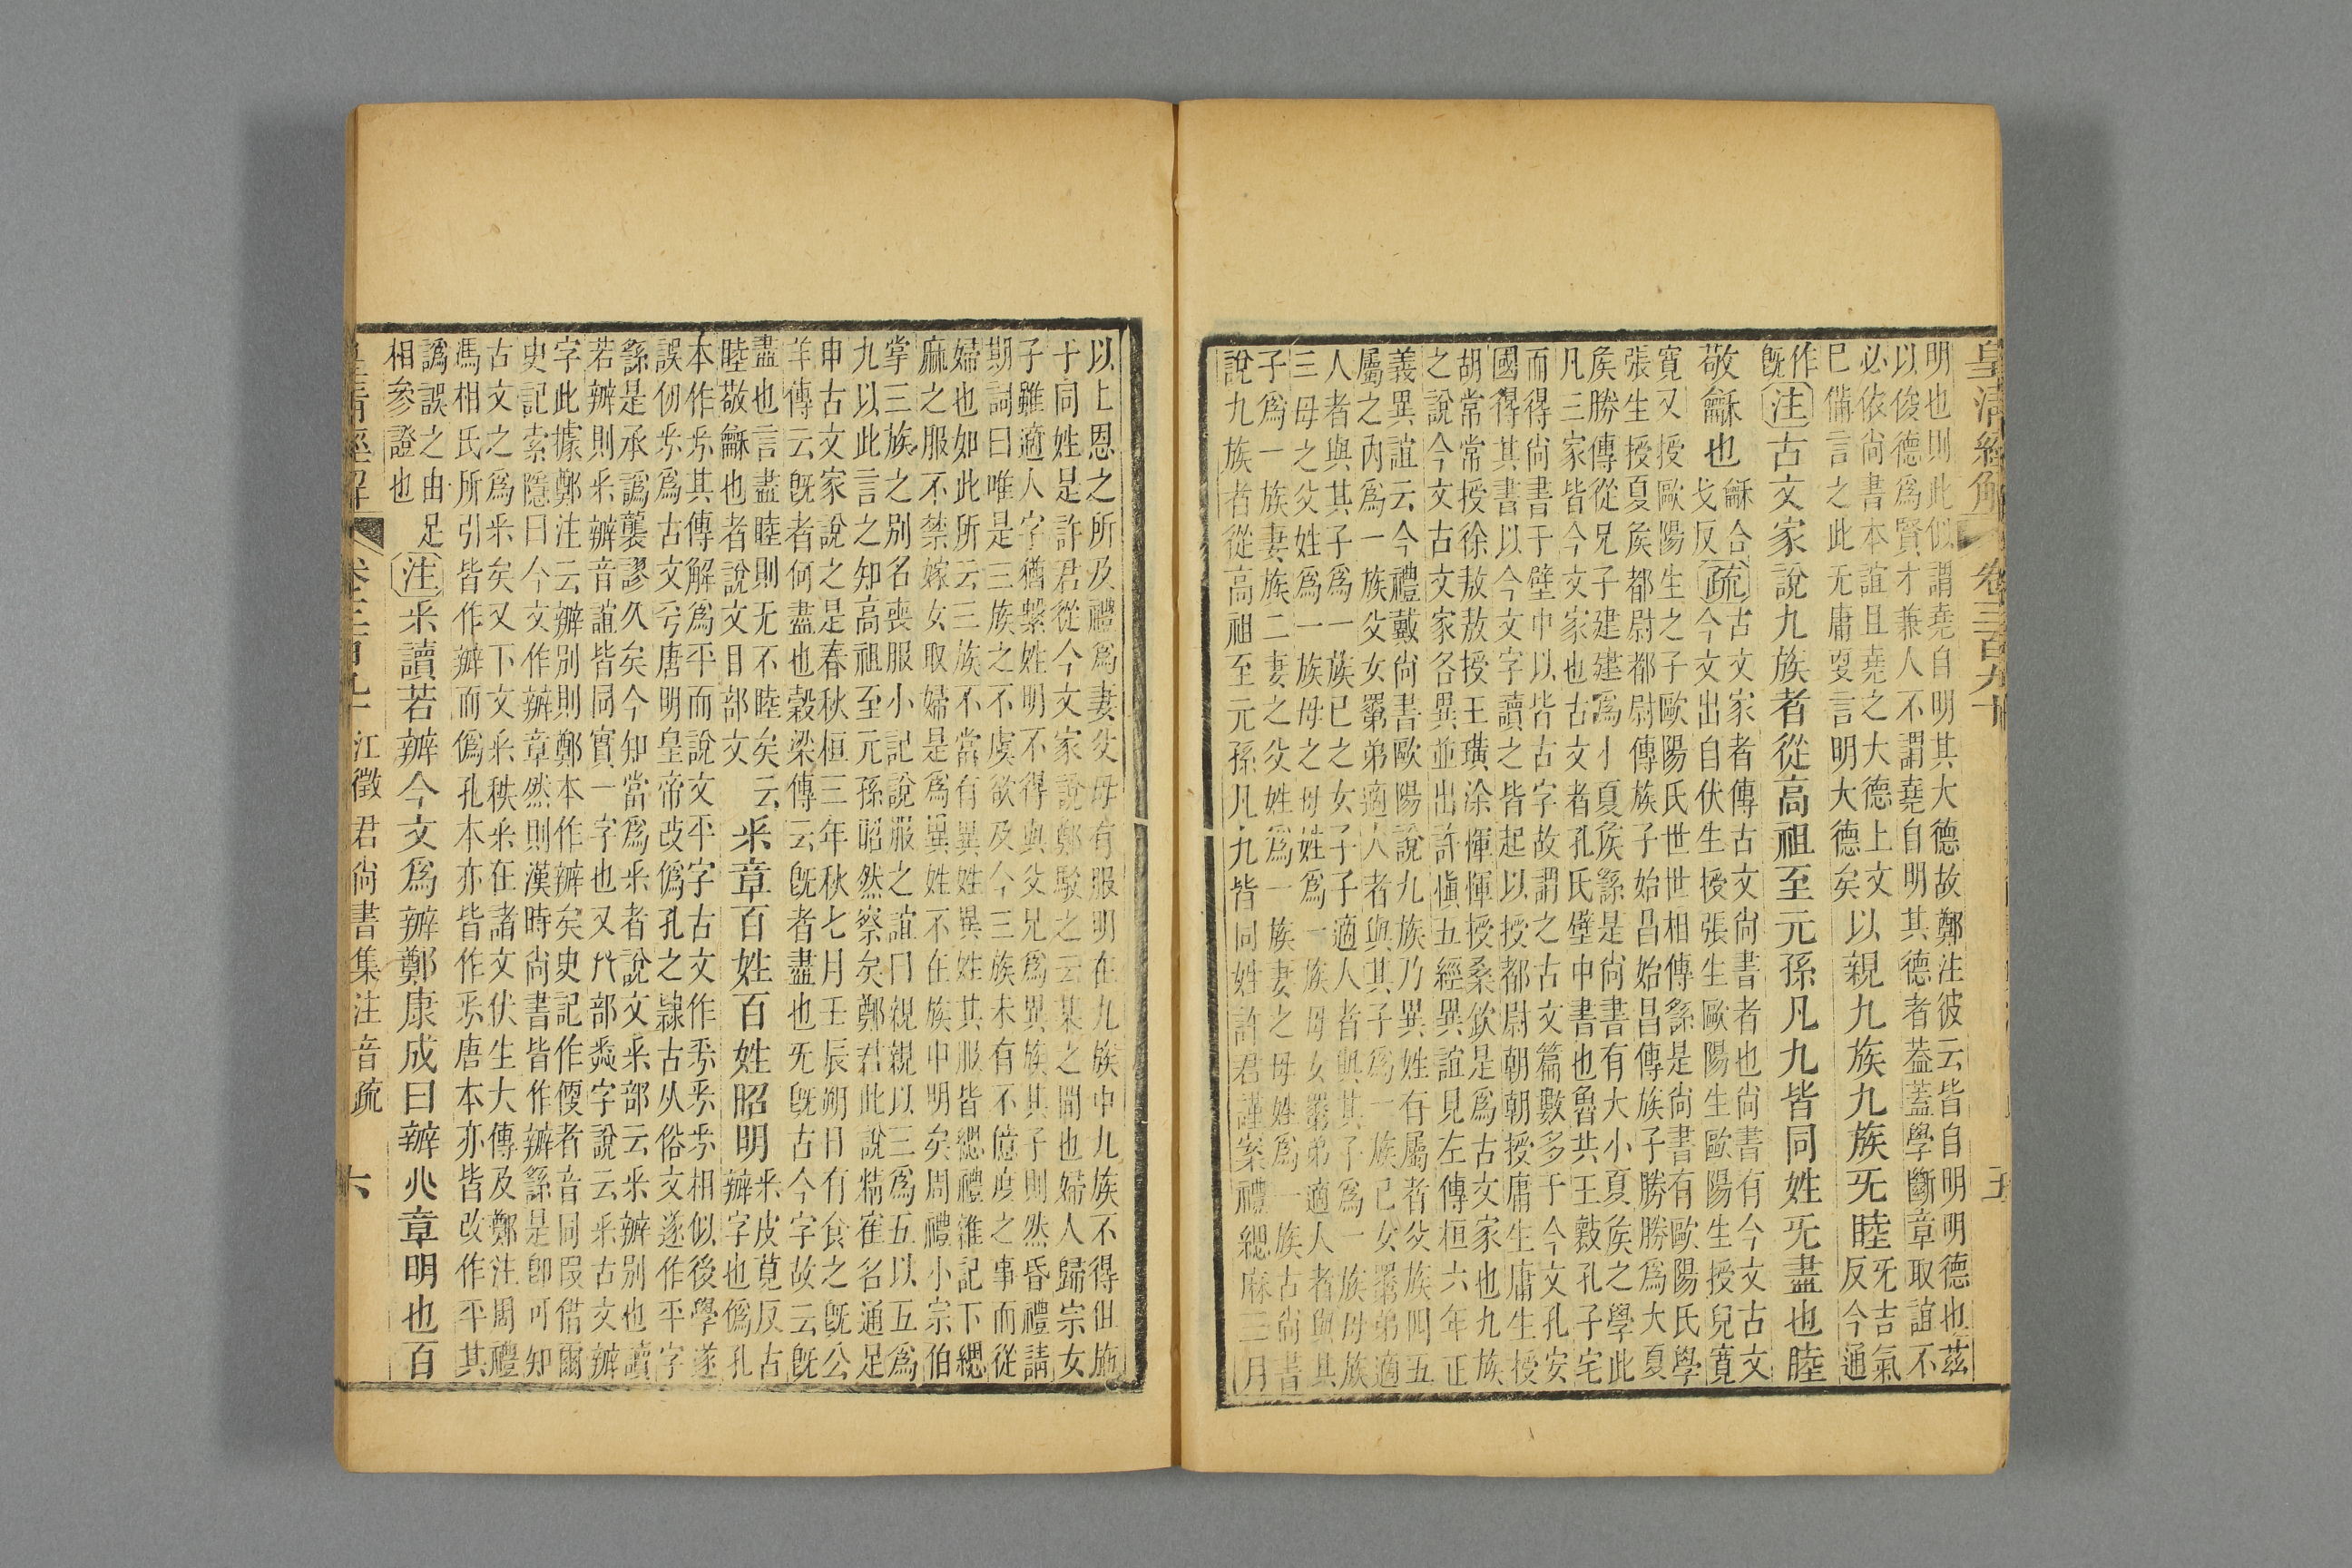 皇清經解 卷三百九十 五
明也則此似謂堯自明其大德故鄭注彼云皆自明明德也茲
以俊德爲賢才兼人不謂堯自明其德者葢蓋學斷章取誼不
必依尙書本誼且堯之大德上文
巳僃言之此无庸㪅言明大德矣
以親九族九族旡睦
旡吉氣
反今通
作
旣
注
古文家說九族者從高祖至元孫凡九皆同姓旡盡也睦
敬龢也
龢合
戈反
疏
古文家者傳古文尙書者也尙書有今文古文
今文出自伏生授張生歐陽生歐陽生授兒寬
寬又授歐陽生之子歐陽氏世世相傳繇是尙書有歐陽氏學
張生授夏矦都尉都尉傳族子始昌始昌傳族子勝勝爲大夏
矦勝傳從兄子建建爲小夏矦繇是尙書有大小夏矦之學此
凡三家皆今文家也古文者孔氏壁中書也魯共王㱾孔子宅
而得尙書于壁中以皆古字故謂之古文篇數多于今文孔安
國得其書以今文字讀之皆起以授都尉朝朝授庸生庸生授
胡常常授徐敖敖授王璜涂惲惲授桑欽是爲古文家也九族
之說今文古文家各異並出許愼五經異誼見左傳桓六年正
義異誼云今禮戴尙書歐陽說九族乃異姓有屬者父族四五
屬之內爲一族父女䍤弟適人者與其子爲一族己女䍤弟適
人者與其子爲一族已之女子子適人者與其子爲一族母族
三母之父姓爲一族母之母姓爲一族母女䍤弟適人者與其
子爲一族妻族二妻之父姓爲一族妻之母姓爲一族古尙書
說九族者從高祖至元孫凡九皆同姓許君謹案禮緦麻三月
以上恩之所及禮爲妻父母有服明在九族中九族不得但施
于同姓是許君從今文家說鄭駁之云某之聞也婦人歸宗女
子雖適人字猶繫姓明不得與父兄爲異族其子則然昏禮請
期詞曰唯是三族之不虞欲及今三族未有不億度之事而從
婦也如此所云三族不當有異姓異姓其服皆緦禮雜記下緦
麻之服不禁嫁女取婦是爲異姓不在族中明矣周禮小宗伯
掌三族之別名喪服小記說服之誼曰親親以三爲五以五爲
九以此言之知高祖至元孫昭然察矣鄭君此說精宷名通足
申古文家說之是春秋桓三年秋七月壬辰朔日有食之旣公
羊傳云旣者何盡也穀梁傳云旣者盡也旡旣古今字故云旣
盡也言盡睦則无不睦矣云
睦敬龢也者說文目部文
釆章百姓百姓昭明
釆皮莧反古
辦字也僞孔
本作釆其傳解爲平而說文平字古文作釆釆釆相似後學遂
誤仞釆爲古文兮唐明皇帝改僞孔之隸古从俗文遂作平字
繇是承譌襲謬久矣今知當爲釆者說文釆部云釆辦別也讀
若辦則釆辦音誼皆同實一字也又𠬞部𢍏字說云釆古文辦
字此據鄭注云辦別則鄭本作辦矣史記作便者音同叚借爾
史記索隱曰今文作辦章然則漢時尙書皆作辦繇是卽可知
古文之爲釆矣又下文釆秩釆在諸文伏生大傳及鄭注周禮
馮相氏所引皆作辦而僞孔本亦皆作釆唐本亦皆改作平其
譌誤之由足
相參證也
注
釆讀若辦今文爲辦鄭康成曰辦𠔁章明也百
皇清經解 卷三百九十 江徵君尙書集注音疏 六